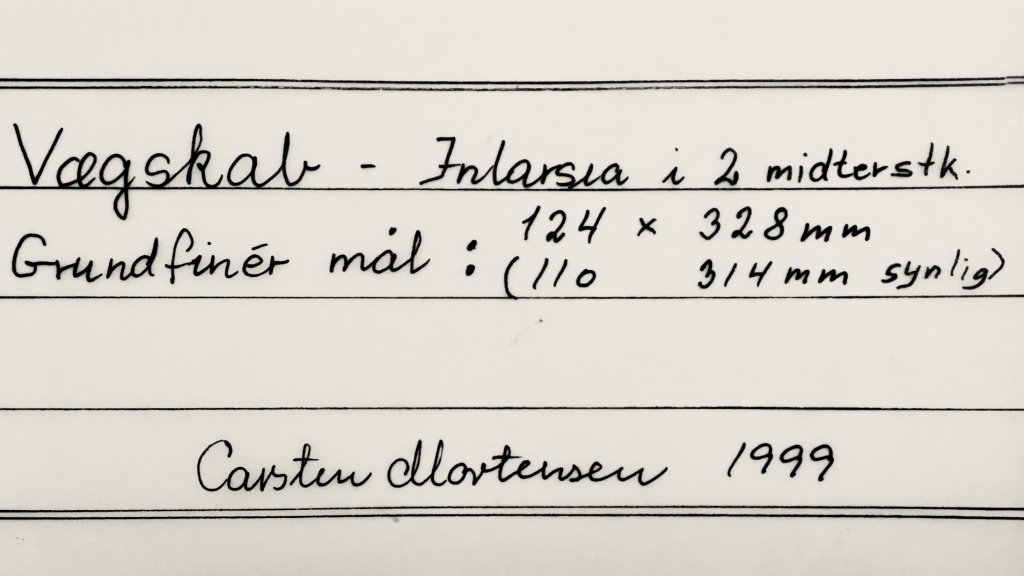 Vægskab - Inlarsia i 2 midterstk.
Grundfinér mål : 124 x 328 mm
(110 314 mm synlig)
Carsten Mortensen 1999